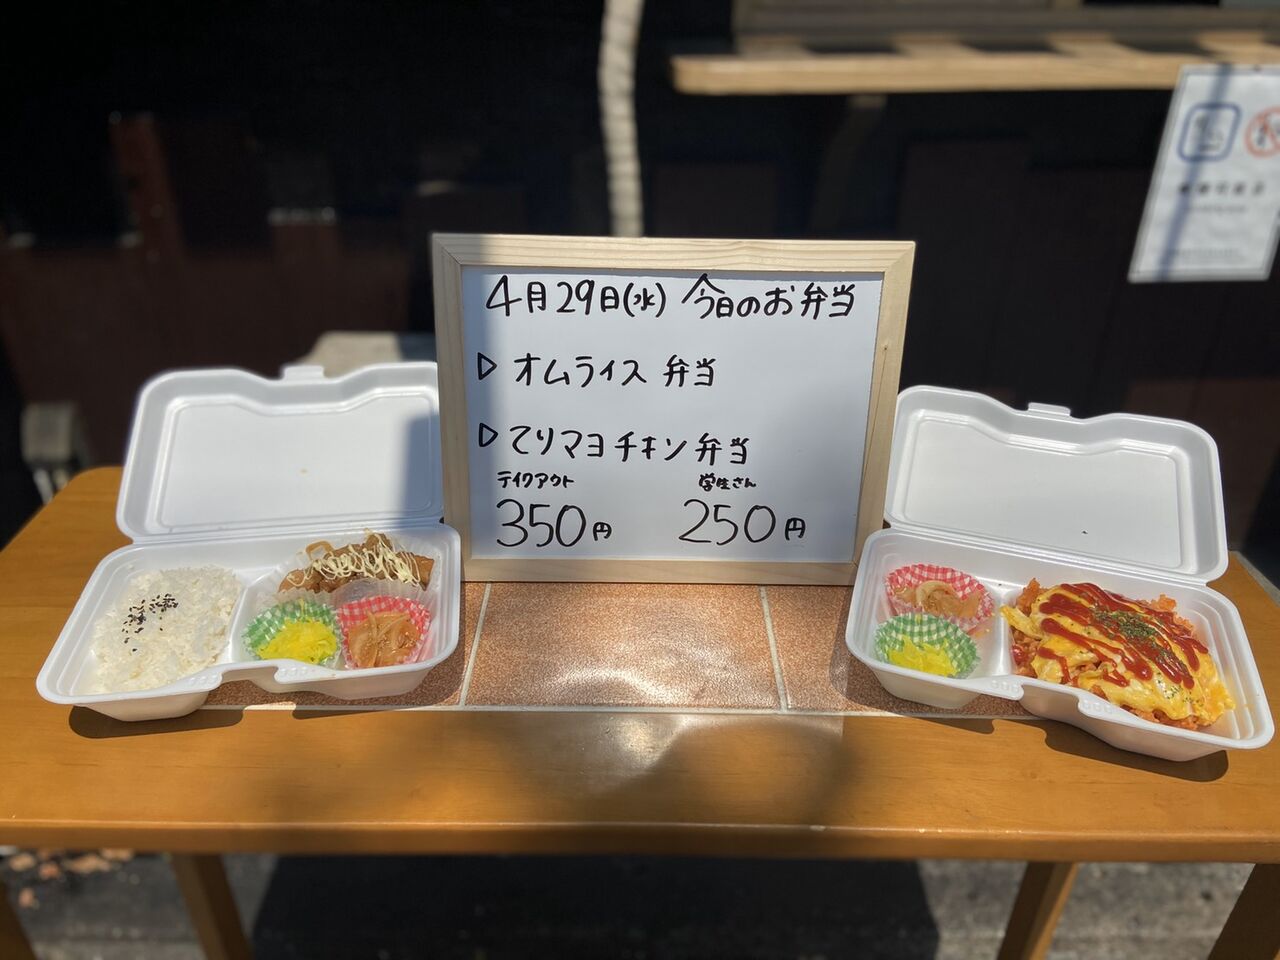 4月29日(水) 今日のお弁当
▷ オムライス 弁当
▷ てりマヨチキン 弁当
テイクアウト 学生さん
350円 250円